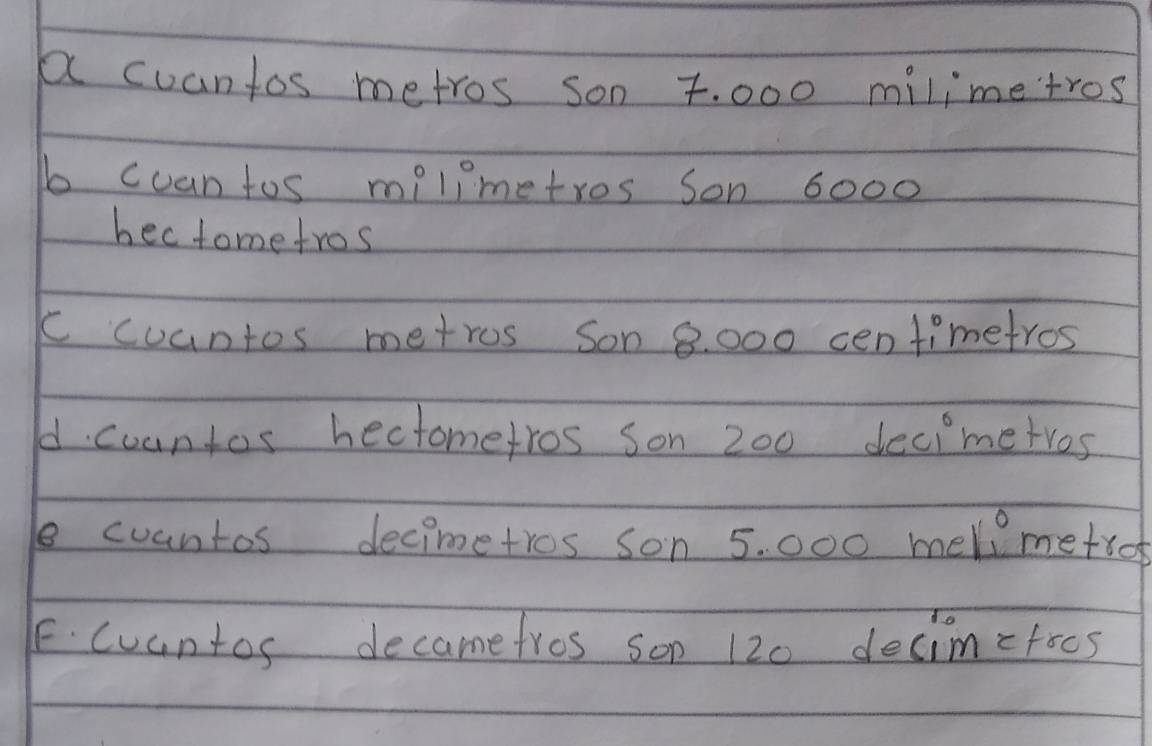 a cuantos metros son 7.000 milimetros
b cuantos milimetros son 6000
hectometros
c cuantos metros son 8.000 centimetros
d. cuantos hectometros son 200 decimetros
e cuantos decimetros son 5.000 melimetros
F. cuantos decametros son 120 decimetros